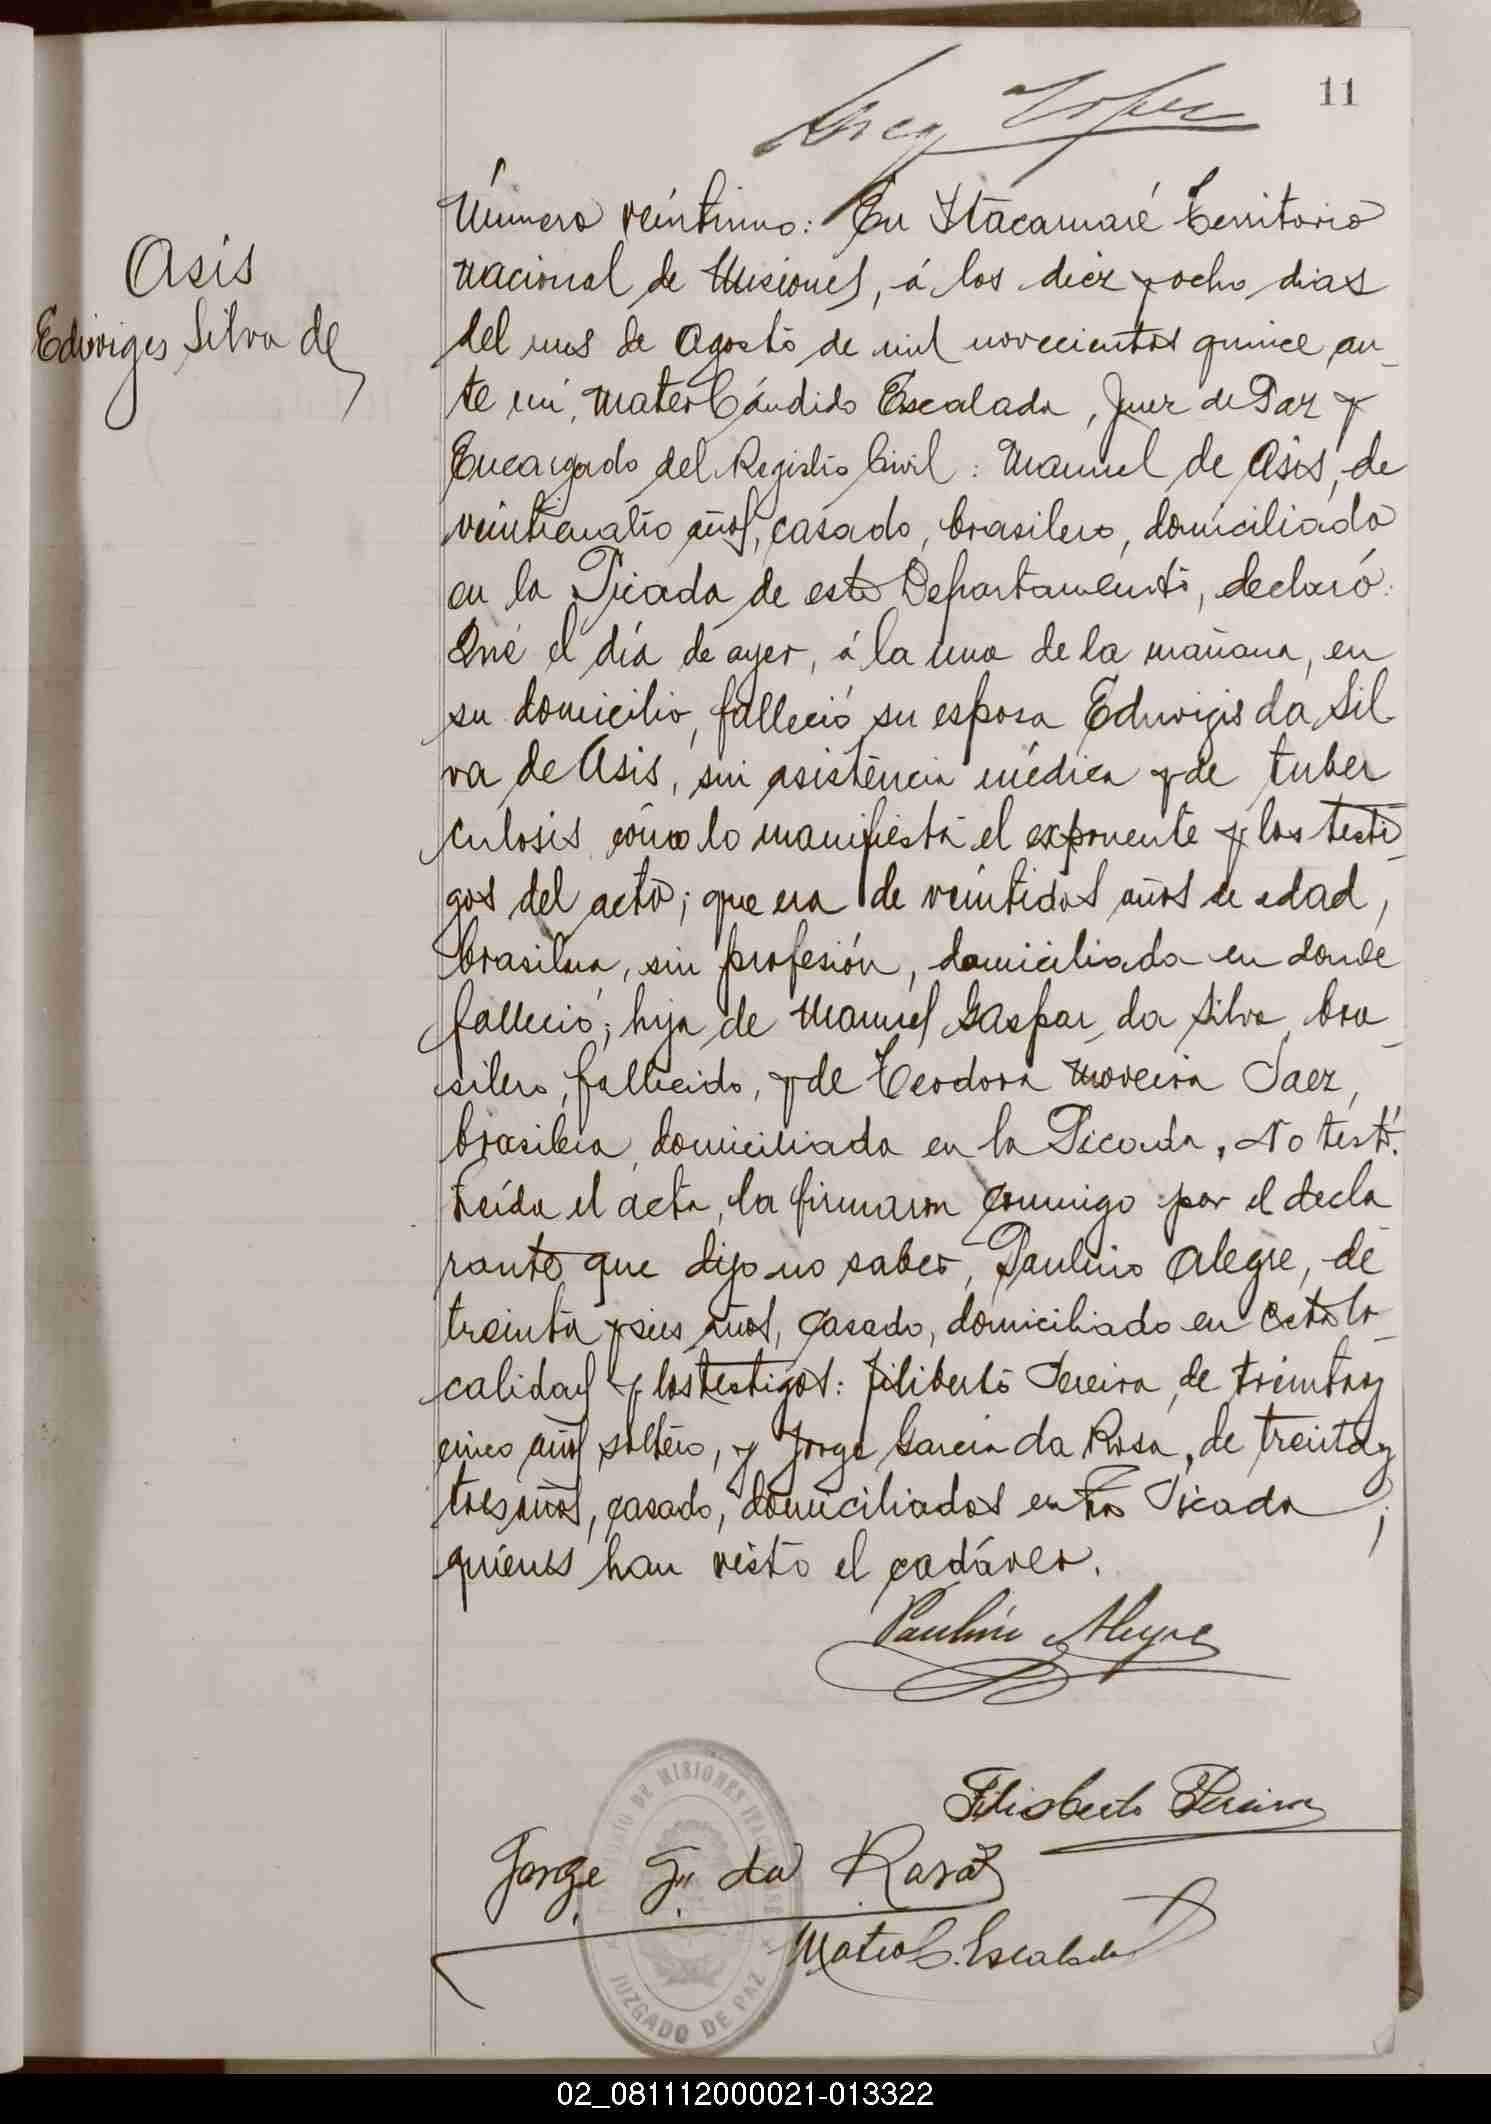 11
Asis
Edwiges Silva de
Número veintiuno: En Itacaruaré Territorio
nacional de Misiones, á los diez y ocho dias
del mes de Agosto de mil novecientos quince an-
te mí, Mateo Cándido Escalada, Juez de Paz y
Encargado del Registro Civil: Manuel de Asis, de
veinticuatro años, casado, brasilero, domiciliado
en la Picada de este Departamento, declaró:
Que el día de ayer, á la una de la mañana, en
su domicilio, falleció su esposa Eduvigis da Sil
va de Asis, sin asistencia médica y de tuber
culosis como lo manifiesta el exponente y los testi-
gos del acto; que era de veintidos años de edad,
brasilera, sin profesión, domiciliada en donde
falleció; hija de Manuel Gaspar da Silva, bra-
silero, fallecido, y de Teodora Moreira Paez,
brasilera, domiciliada en la Picada. No testó.
Leída el acta, la firmaron conmigo por el decla
rante que dijo no saber, Paulino Alegre, de
treinta y seis años, casado, domiciliado en esta lo-
calidad y los testigos: Filiberto Pereira, de treinta y
cinco años soltero, y Jorge Garcia da Rosa, de treinta y
tres años, casado, domiciliados en la Picada;
quienes han visto el cadáver.
Paulino Alegre
Filisberto Pereira
Jorge G. da Rosa
Mateo C. Escalada
MISIONES
JUZGADO DE PAZ
02_081112000021-013322